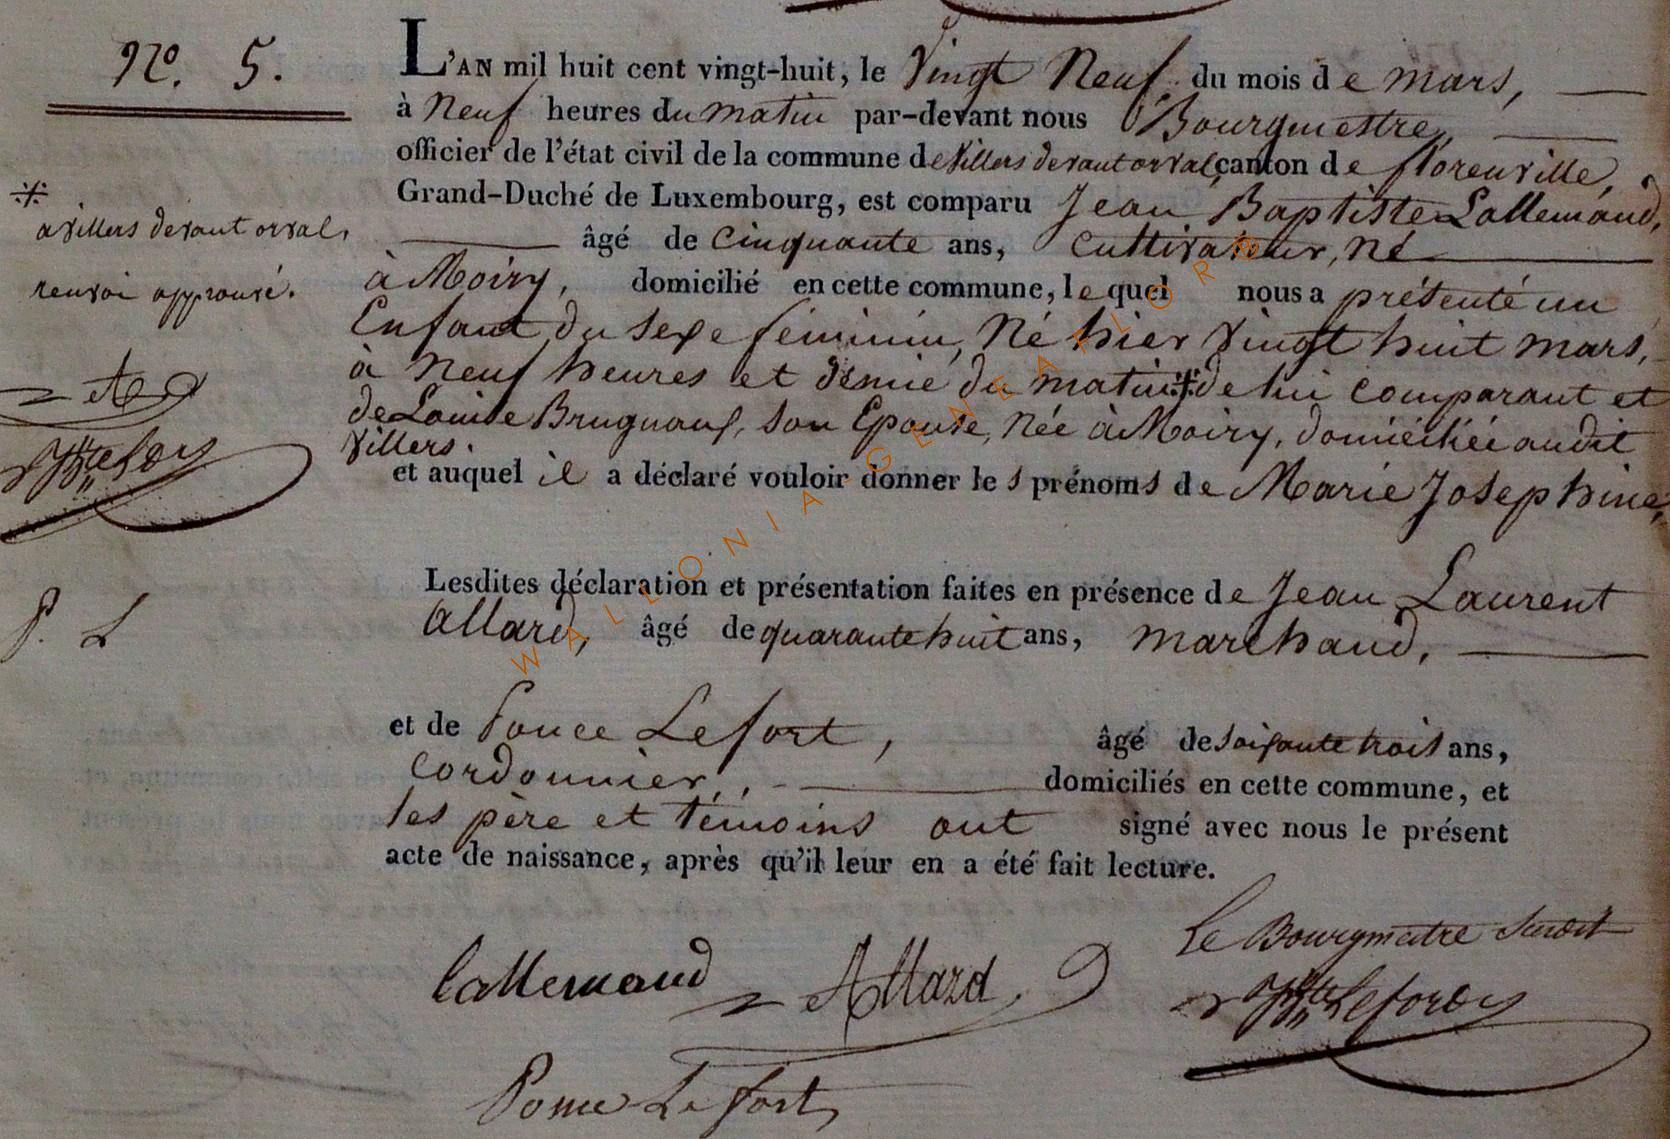 No. 5.
L'AN mil huit cent vingt-huit, le Vingt Neuf du mois de mars,
à Neuf heures du matin par-devant nous Bourgmestre,
officier de l'état civil de la commune de Villers devant orval, canton de florenville,
Grand-Duché de Luxembourg, est comparu Jean Baptiste Lallemand,
âgé de Cinquante ans, Cultivateur, né
à Moiry, domicilié en cette commune, lequel nous a présenté un
Enfant du sexe féminin, Né hier Vingt huit mars,
à Neuf heures et demie du matin * de lui comparant et
de Louise Brugnaux, son Epouse, Née à Moiry, domiciliée audit
Villers.
et auquel il a déclaré vouloir donner les prénoms de Marie Josephine,
* a villers devant orval,
renvoi approuvé.
P. L
Lesdites déclaration et présentation faites en présence de Jean Laurent
allard, âgé de quarante huit ans, marchand,
et de Ponce Lefort, âgé de soixante trois ans,
Cordonnier, domiciliés en cette commune, et
les père et témoins ont signé avec nous le présent
acte de naissance, après qu'il leur en a été fait lecture.
Lallemand Allard Le Bourgmestre susdit
Ponce Lefort
WALLONIA GENEAFLORE